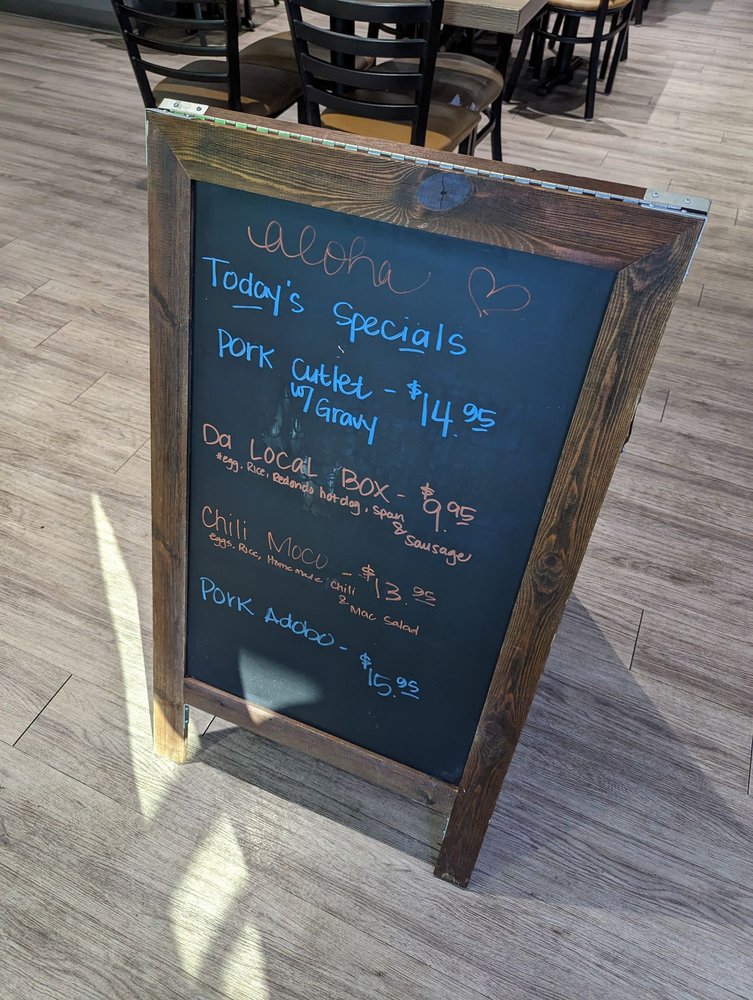 aloha
Today's Specials
Pork Cutlet - $14.95
w/ Gravy
Da Local Box - $9.95
*egg, Rice, Redondo hotdog, Spam
& Sausage
Chili Moco - $13.95
eggs, Rice, Homemade Chili
& Mac Salad
Pork Adobo - $15.95